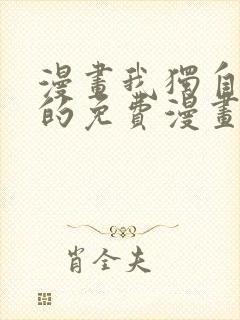 漫畫我獨自
的免費漫畫
肖全夫